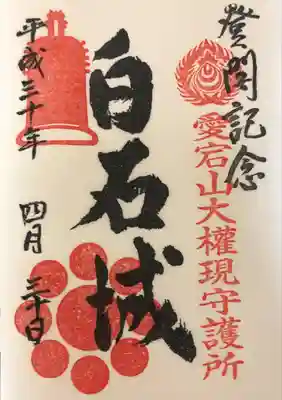 登閣記念
愛宕山大權現守護所
白石城
平成三十年 四月 三十日